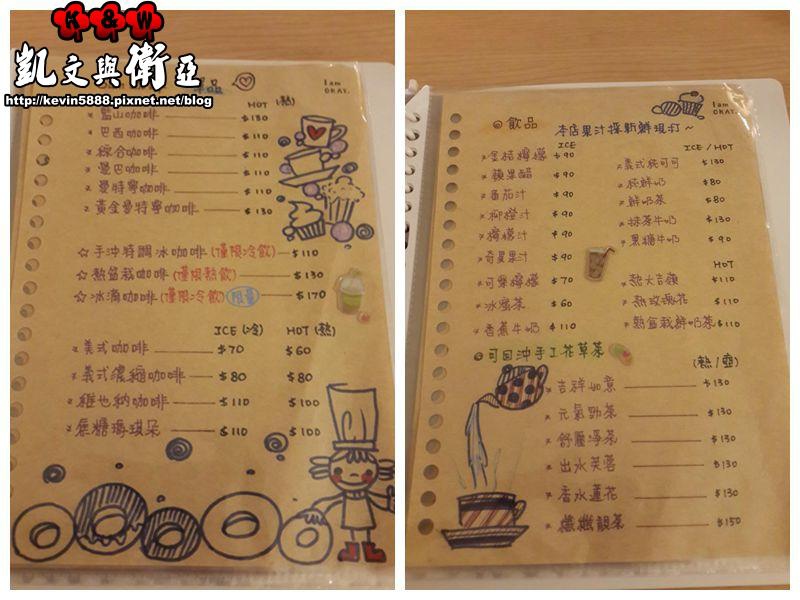 K&W
凱文與衛亞
http://kevin5888.pixnet.net/blog
單品
I am OKAY.
HOT (熱)
藍山咖啡 $130
巴西咖啡 $110
綜合咖啡 $110
曼巴咖啡 $110
曼特寧咖啡 $110
黃金曼特寧咖啡 $130
☆手沖特調冰咖啡(僅限冷飲) $110
☆熱盆栽咖啡(僅限熱飲) $130
☆冰滴咖啡(僅限冷飲)限量 $170
ICE(冷) HOT(熱)
美式咖啡 $70 $60
義式濃縮咖啡 $80 $80
維也納咖啡 $110 $100
焦糖瑪琪朵 $110 $100
I am OKAY.
飲品 本店果汁採新鮮現打~
ICE
金桔檸檬 $90
蘋果醋 $90
番茄汁 $90
柳橙汁 $90
檸檬汁 $90
奇異果汁 $90
可樂檸檬 $70
冰蜜茶 $60
香蕉牛奶 $110
ICE/HOT
義式純可可 $130
純鮮奶 $80
鮮奶茶 $80
抹茶牛奶 $130
黑糖牛奶 $90
HOT
熱大吉嶺 $110
熱玫瑰花 $110
熱盆栽鮮奶茶 $110
可回沖手工花草茶
(熱/壺)
吉祥如意 $130
元氣勁茶 $130
舒壓淨茶 $130
出水芙蓉 $130
香水蓮花 $130
纖纖靚茶 $150